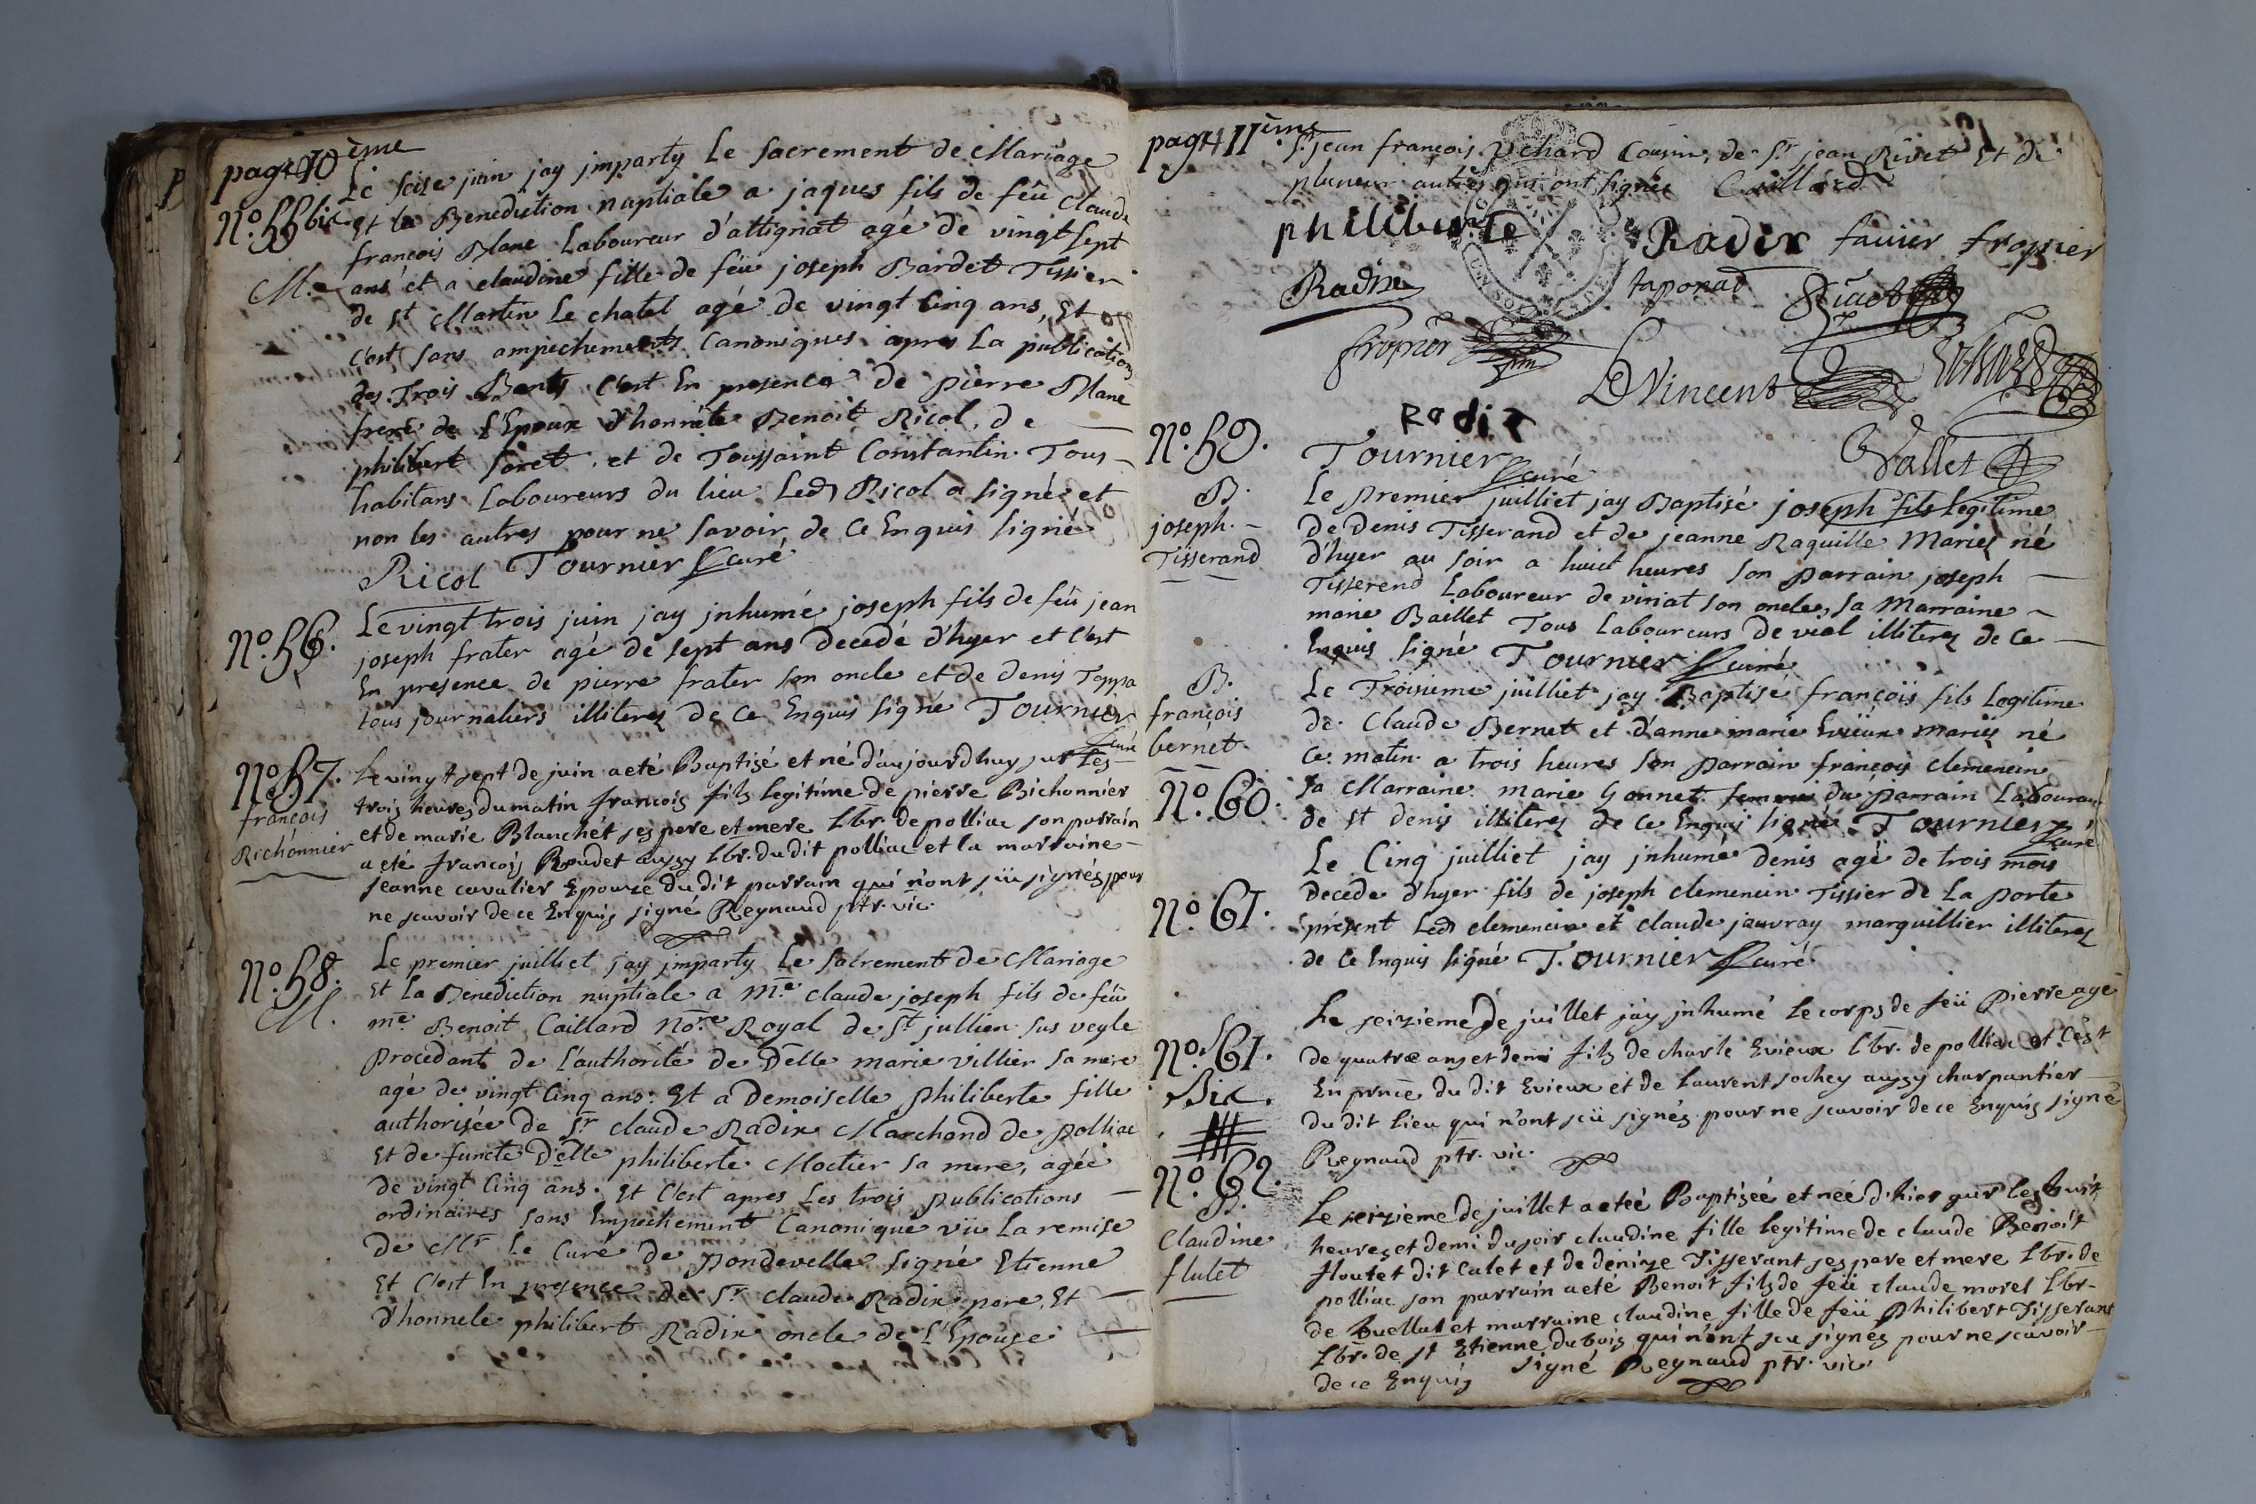 page 10ème
Le seise juin jay jmparty Le Sacrement de Mariage
No. 55 bis Et la Benediction nuptiale a jaques fils de feû Claude
françois Blanc Laboureur d'attignat agé de vingt sept
M. ans et a claudine fille de feu joseph Bardet Tissier
de St Martin Le chatel agé de vingt Cinq ans, Et
c'est sans ampechements Canoniques apres La publications
des Trois Bants c'est En presence de pierre Blanc
frere de L'Epoux d'honnête Benoit Ricol, de
philibert foret et de Toussaint Constantin Tous
habitans Laboureurs du lieu Led Ricol a signé et
non les autres pour ne savoir de Ce Enquis signé
Ricol Tournier curé
No. 56. Le vingt trois juin jay jnhumé joseph fils de feû jean
joseph frater agé de sept ans decedé d'hyer et C'est
En presence de pierre frater son oncle et de denis
tous journaliers illiterez de Ce Enquis signé Tournier
curé
No. 57. Le vingt sept de juin a eté Baptisé et né d'aujourdhuy sur Les
françois trois heures du matin francois fils legitime de pierre Richonnier
Richonnier et de marie Blanchét ses pere et mere Lbr. de polliac son parrain
a eté francois Roudet aussy Lbr. du dit polliac et la marraine
jeanne cavalier Epouze du dit parrain qui n'ont sçü signés pour
ne scavoir de ce Enquis signé Reynaud ptr. vic.
No. 58. Le premier juilliet jay jmparty Le Sacrement de Mariage
M. Et La Benediction nuptiale a Me. claude joseph fils de feû
me. Benoit Caillard Nore Royal de St jullien sus veyle
procedant de L'authorité de Delle marie villier sa mere
agé de vingt Cinq ans. Et a Demoiselle philiberte fille
authorisée de Sr claude Radix Marchand de polliac
Et de functe Delle philiberte Moctier sa mere, agée
de vingt Cinq ans. Et C'est apres Les trois publications
ordinaires sans Empechement Canonique vüe La remise
de Mr Le Curé de pondevelle signé Etienne
Et C'est En presence de Sr claude Radix pere, Et
d'honnete philibert Radix oncle de L'Epouse
page 11ème
Sr jean françois Cousin, de Sr jean Rivet Et de
plusieur autres qui ont signés Caillard
philiberte Radix favier fropier
Radix taponad
fropier
DVincent
Radix
Vallet
No. 59. Tournier curé
B. Le premier juilliet jay Baptisé joseph fils Legitime
joseph de Denis Tisserand et de jeanne Raquille Mariez né
Tisserand d'hyer au soir a huict heures son parrain joseph
Tisserend Laboureur de viriat son oncle, sa Marraine
marie Baillet Tous Laboureurs de vial illiterez de Ce
Enquis signé Tournier curé
B. Le Troisieme juilliet jay Baptisé françois fils Legitime
françois de Claude Bernet et d'anne marie mariés né
bernét. Ce matin a trois heures son parrain françois clemencin
No. 60. sa Marraine marie Gonnet femme du parrain Laboureur
de St denis illiterez de Ce Enquis signé Tournier curé
Le Cinq juilliet jay jnhumé denis agé de trois mois
No. 61. decede d'hyer fils de joseph clemencin Tissier de La porte
present Led clemencin et claude jauvray marguillier illiterez
de Ce Enquis signé Tournier curé
Le seizieme de juillet jáy jnhumé Le corps de feü pierre agé
No. 61. de quatre ans et demi fils de charle Evieux Lbr. de polliac et C'est
Bis. En prnce du dit Evieux et de Laurent sochey aussy charpantier
du dit Lieu qui n'ont sçü signés pour ne scavoir de ce Enquis signé
Reynaud ptr. vic.
No. 62. Le seizieme de juillet a eteé Baptizeé et neé d'hier sur les huit
B. heures et demi du soir claudine fille legitime de claude Benoit
Claudine floutet dit Calet et de denize Tisserant ses pere et mere Lbr. de
flutet polliac son parrain a eté Benoit fils de feü claude morel Lbr.
de buellat et marraine claudine fille de feü philibert Tisserant
Lbr. de st Etienne du bois qui n'ont sçu signés pour ne scavoir
de ce Enquis signé Reynaud ptr. vic.